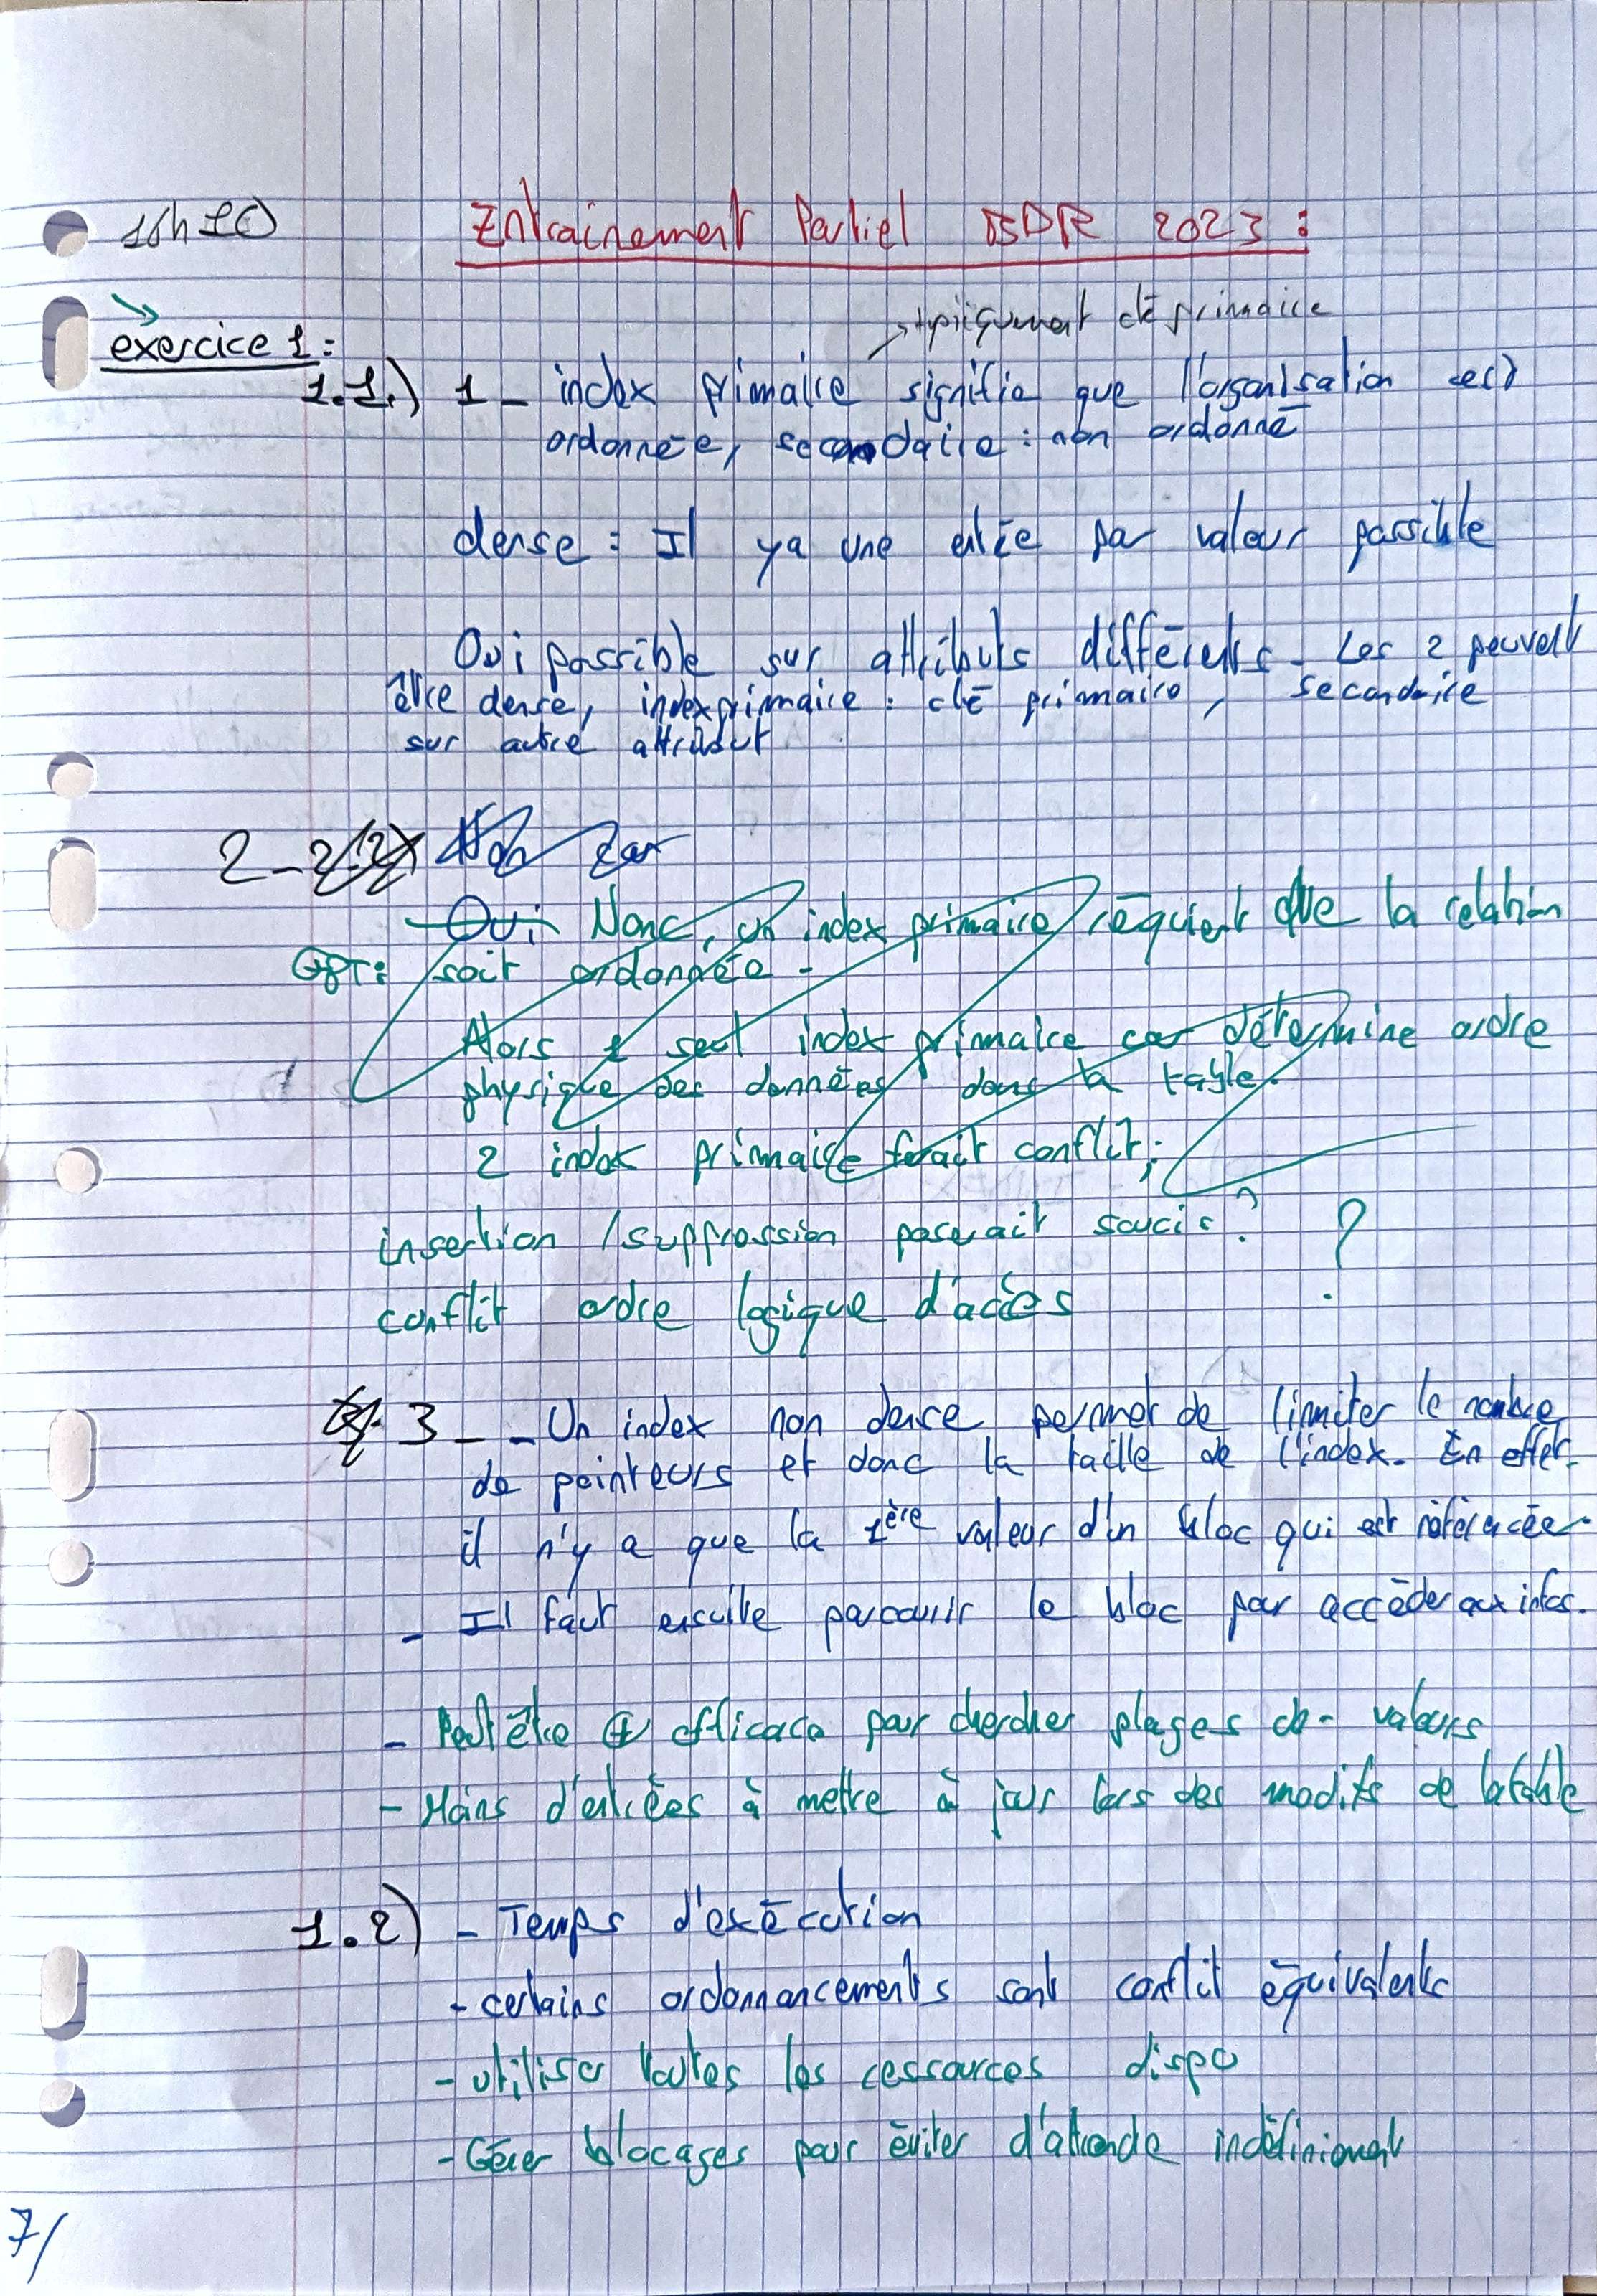 16h10
Entrainement Partiel BDR 2023 :
typiquement clé primaire
exercice 1 :
1.1.) 1 - index primaire signifie que l'organisation est
ordonnée, secondaire : non ordonné
dense : Il y a une entrée par valeur possible
Oui possible sur attributs différents - Les 2 peuvent
être dense, index primaire : clé primaire, secondaire
sur autre attribut
2 - Non car
Oui Non, un index primaire requiert que la relation
GPT : soit ordonnée -
Alors 1 seul index primaire car détermine ordre
physique des données dans la table.
2 index primaire ferait conflit,
insertion / suppression poserait soucis ? ?
conflit ordre logique d'accès
3 - - Un index non dense permet de limiter le nombre
de pointeurs et donc la taille de l'index. En effet
il n'y a que la 1ère valeur d'un bloc qui est référencée.
- Il faut ensuite parcourir le bloc pour accéder aux infos.
- Peut être + efficace pour chercher plages de valeurs
- Moins d'entrées à mettre à jour lors des modifs de la table
1.2) - Temps d'exécution
- certains ordonnancements sont conflit équivalents
- utiliser toutes les ressources dispo
- Gérer blocages pour éviter d'attende indéfiniment
7/